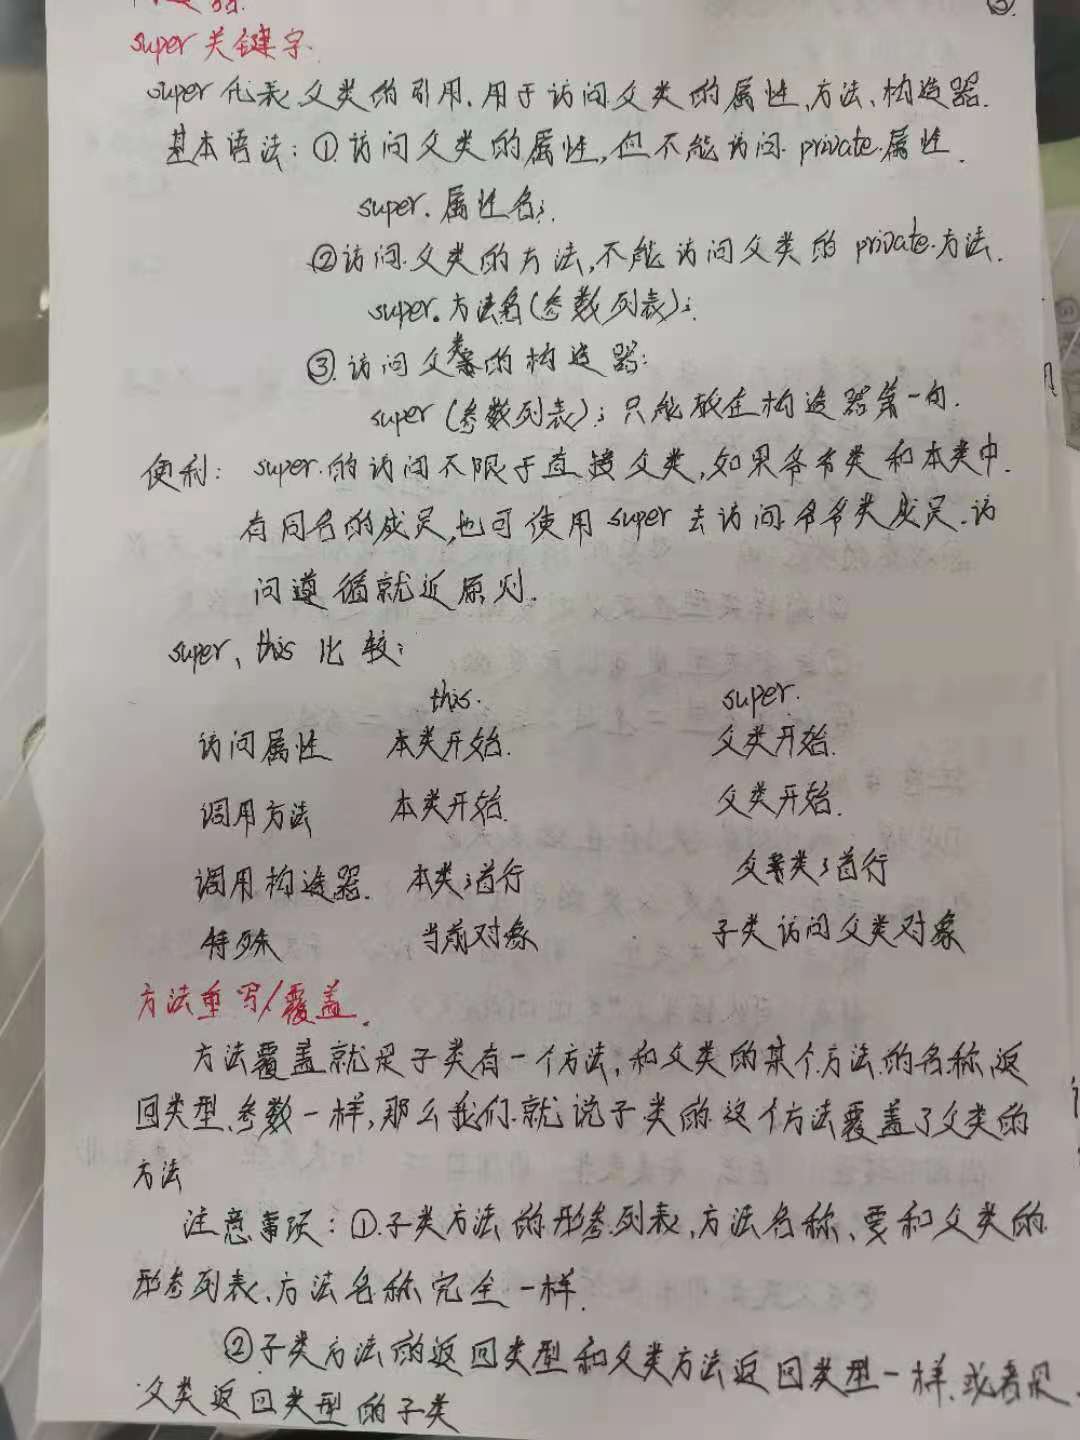 ③.
super 关键字.
super 代表父类的引用、用于访问父类的属性、方法、构造器.
基本语法：①访问父类的属性,但不能访问 private 属性.
super. 属性名;.
②访问父类的方法,不能访问父类的 private 方法.
super. 方法名(参数列表);
③.访问父类的构造器:
super (参数列表); 只能放在构造器第一句.
便利: super 的访问不限于直接父类,如果爷爷类和本类中.
有同名的成员,也可使用 super 去访问爷爷类成员.访
问遵循就近原则.
super、this 比较:
this. super.
访问属性 本类开始. 父类开始.
调用方法 本类开始. 父类开始.
调用构造器. 本类;首行 父类;首行
特殊 当前对象 子类访问父类对象
方法重写/覆盖.
方法覆盖就是子类有一个方法,和父类的某个方法的名称、返
回类型、参数一样,那么我们就说子类的这个方法覆盖了父类的
方法
注意事项：①.子类方法的形参列表,方法名称、要和父类的
形参列表、方法名称完全一样.
②子类方法的返回类型和父类方法返回类型一样,或者是
父类返回类型的子类